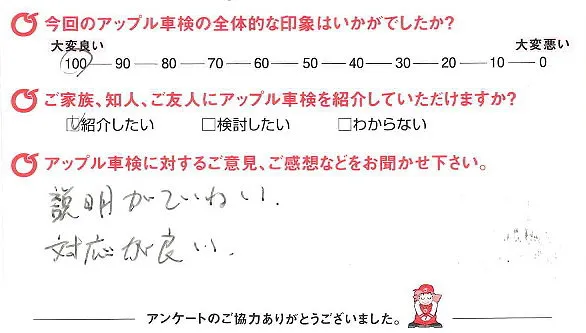 今回のアップル車検の全体的な印象はいかがでしたか?
大変良い 大変悪い
100 — 90 — 80 — 70 — 60 — 50 — 40 — 30 — 20 — 10 — 0
ご家族、知人、ご友人にアップル車検を紹介していただけますか?
☑紹介したい □検討したい □わからない
アップル車検に対するご意見、ご感想などをお聞かせ下さい。
説明がていねい.
対応が良い.
アンケートのご協力ありがとうございました。